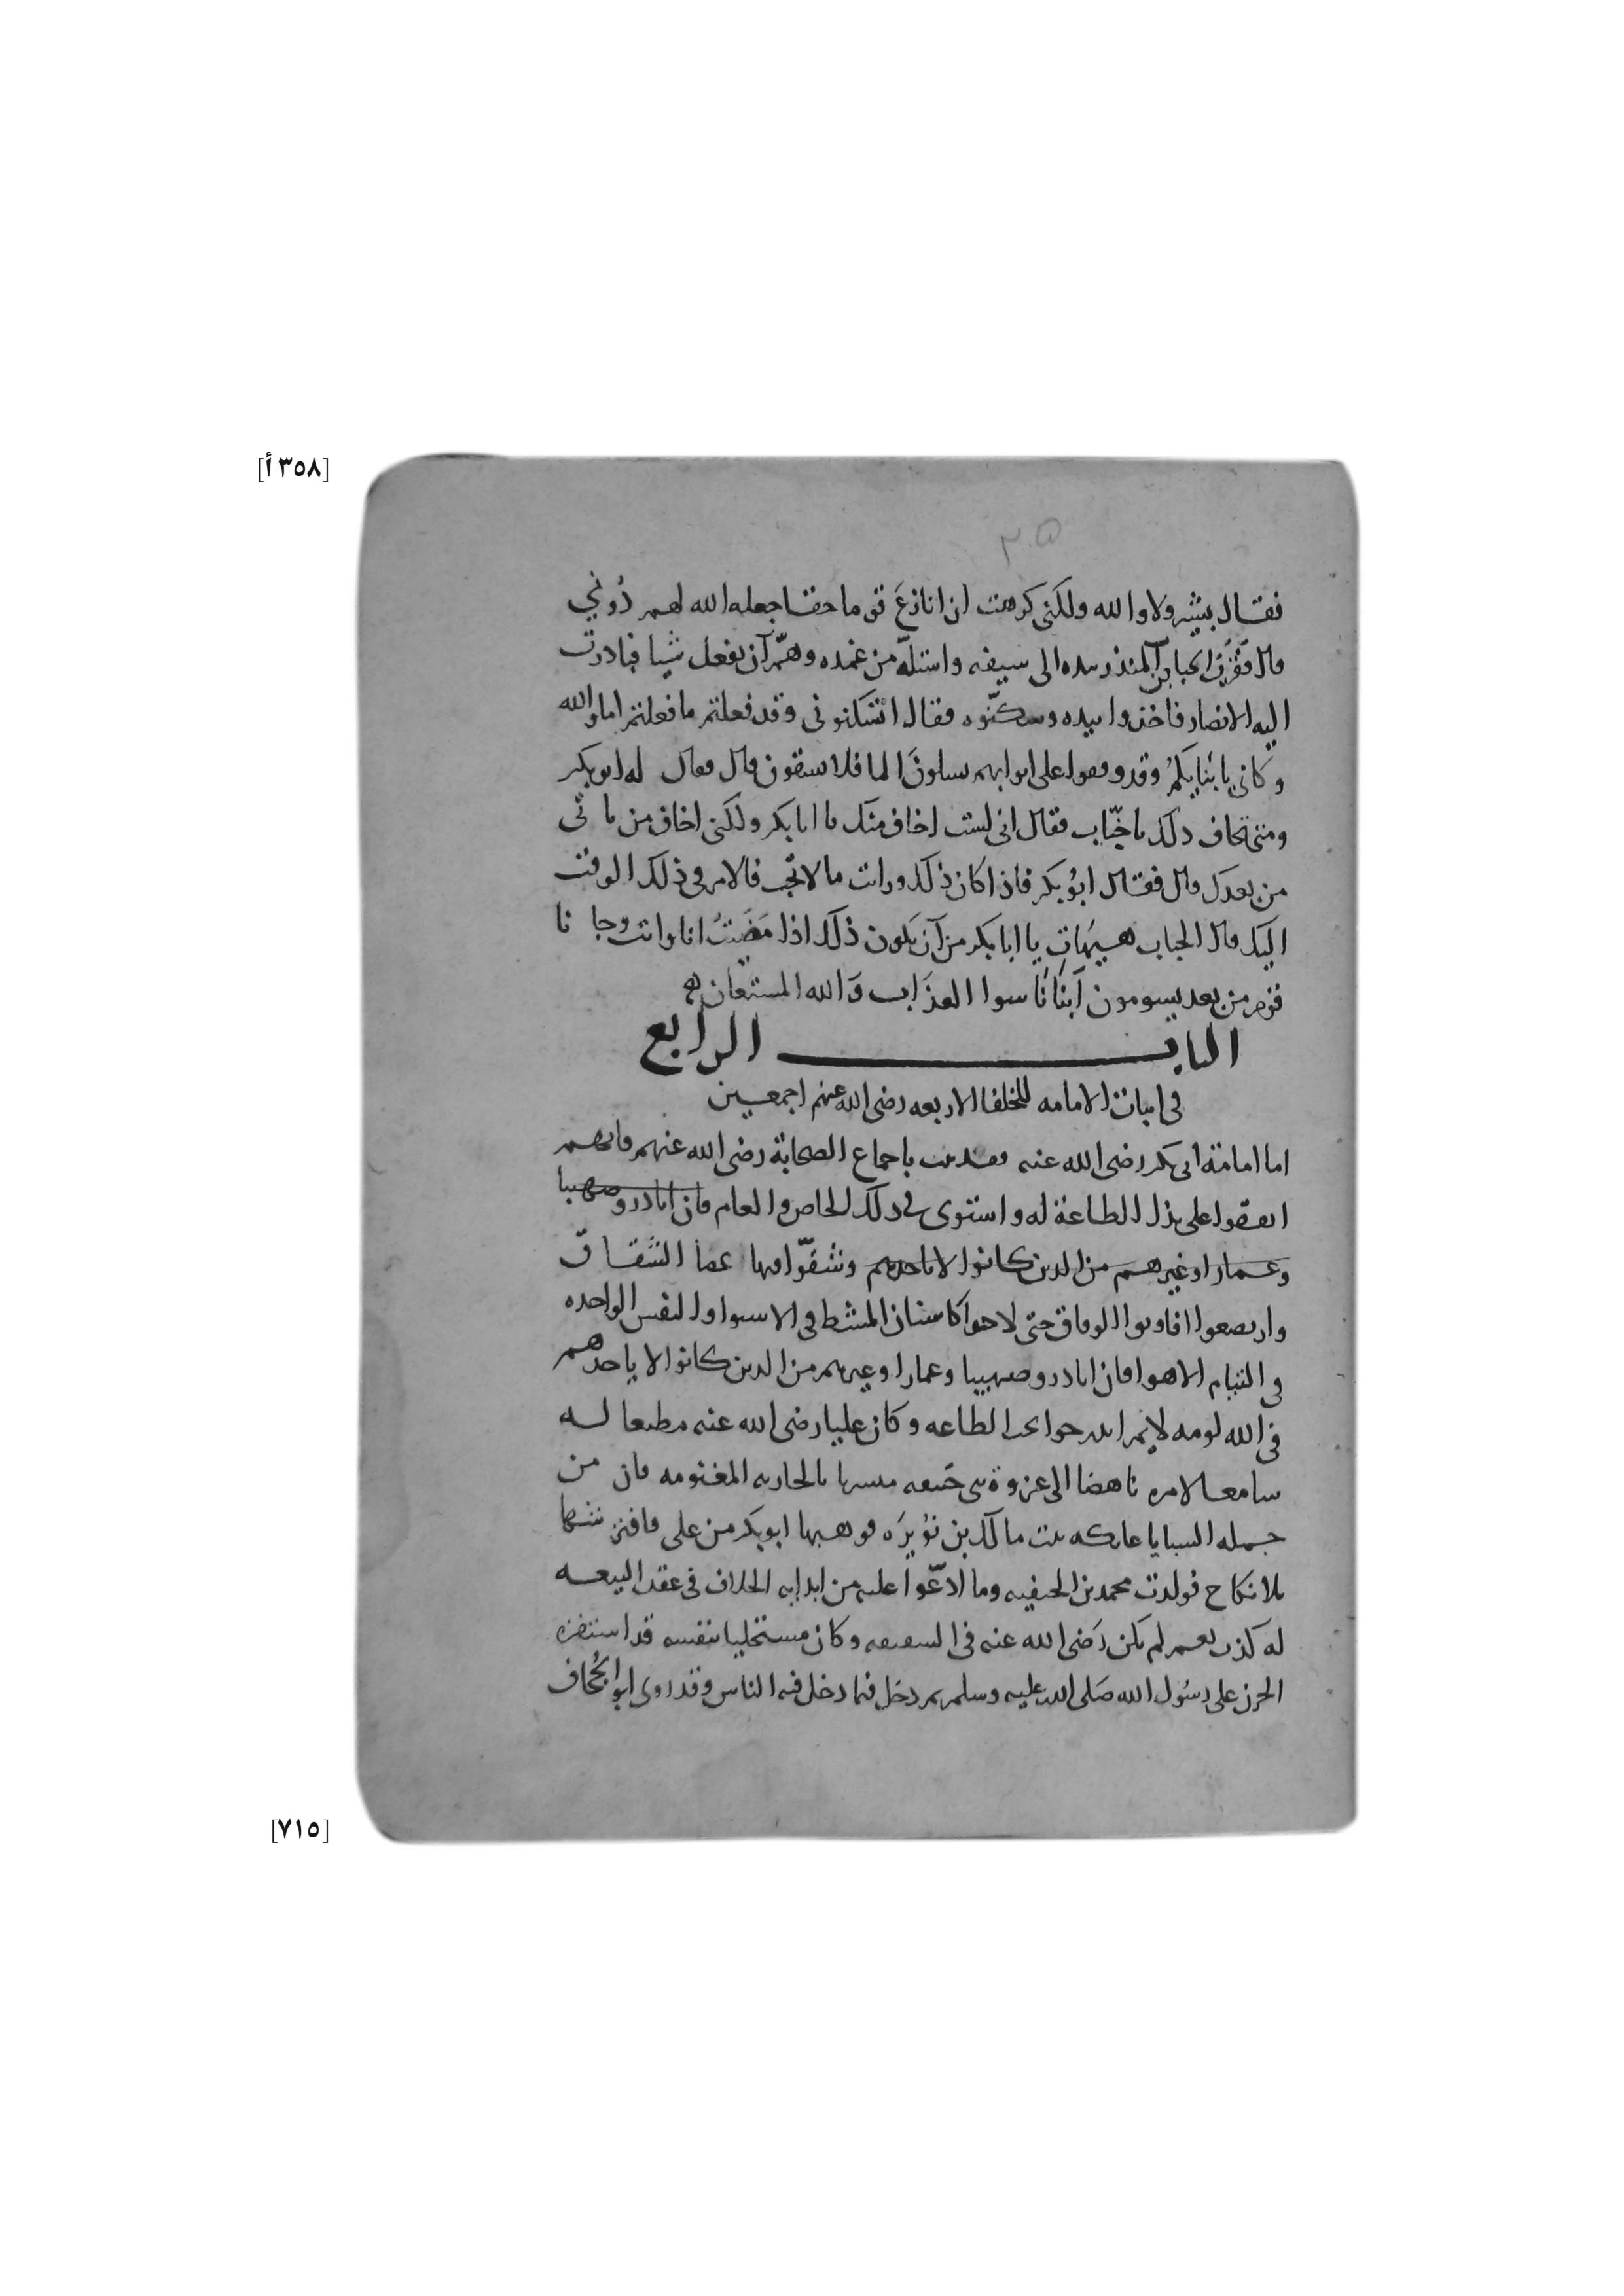 [٣٥٨ أ]
٣٥
فقال بشير ولا والله ولكنى كرهت ان انازع قوما حقا جعله الله لهم دُوني
قال فضرب الحباب بن المنذر بيده الى سيفه واستلّه من غمده وهمّ ان يفعل شيا فبادرت
اليه الانصار فاخذوا بيده وسكنّوه فقال اتسكنونى وقد فعلتم ما فعلتم اما والله
وكانى بابنايكم وقد وقفوا على ابوابهم يسلون الما فلا يسقون قال فقال له ابو بكر
ومتى تخاف ذلك يا حبّاب فقال انى لست اخاف منك يا ابا بكر ولكنى اخاف من ياتى
من بعدك قال فقال ابوُ بكر فاذا كان ذلك ورايت ما لا تحب فالامر فى ذلك الوقت
اليك قال الحباب هيهات يا ابا بكر من ان يكون ذلك اذا مضيتُ انا وانت وجا نا
قوم من بعد يسومون ابنانا سوا العذاب والله المستعان
البابــــــ الرابع
فى اثبات الامامه للخلفا الاربعه رضى الله عنهم اجمعين
اما امامة ابى بكر رضى الله عنه فقد ثبت باجماع الصحابة رضى الله عنهم فانهم
اتفقوا على بذل الطاعة له واستوى فى ذلك الخاص والعام فان اباذر وصهيبا
وعمارا وغيرهم من الذين كانوا لا تاخذهم وشقّوا فيها عصا الشقاق
وارتضعوا افاويق الوفاق حتى لاحوا كاسنان المشط فى الاستوا والنفس الواحده
فى التيام الاهوا فان اباذر وصهيبا وعمارا وغيرهم من الذين كانوا لا ياخذهم
فى الله لومه لايم اندرجوا تحت الطاعه وكان عليا رضى الله عنه مطيعا له
سامعا لامره ناهضا الى غزوة بنى حنيفه متسريا بالجاريه المغنومه فان من
جمله السبايا عاتكه بنت مالك بن نوُيرَه فوهبها ابو بكر من على فافترشها
بلا نكاح فولدت محمد بن الحنفيه وما ادّعوا عليه من ابدايه الخلاف فى عقد البيعه
له كذب نعم لم يكن رضى الله عنه فى السقيفه وكان مستخليا بنفسه قد استفزه
الحزن على رسُول الله صَلى الله عليه وسلم ثم دخل فيما دخل فيه الناس وقد روى ابو الجُحاف
[٧١٥]